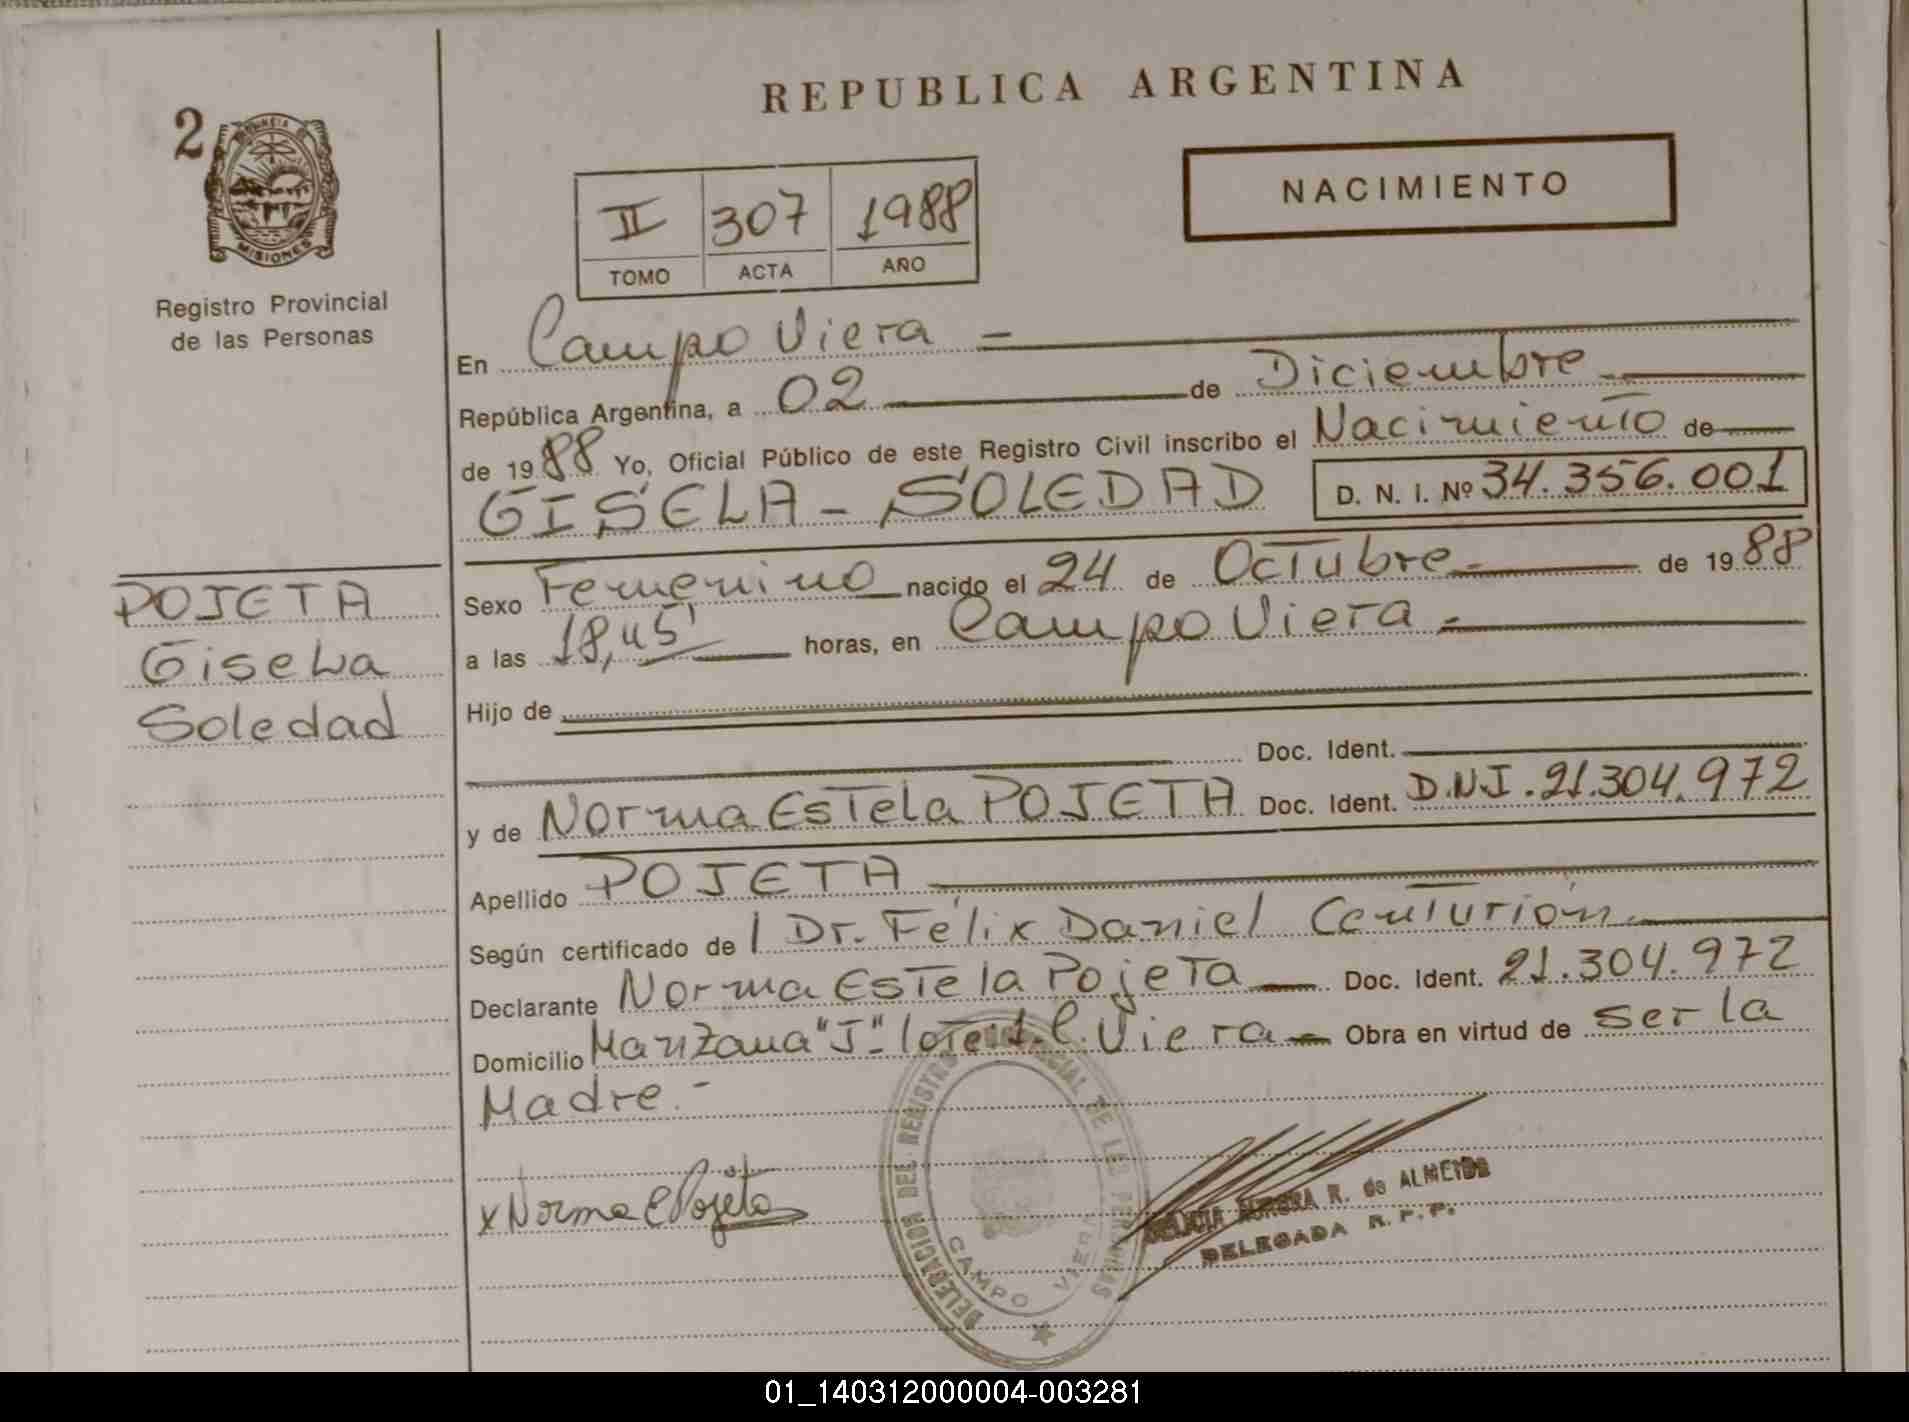 2
PROVINCIA DE
MISIONES
Registro Provincial
de las Personas
POJETA
Gisela
Soledad
REPUBLICA ARGENTINA
NACIMIENTO
II 307 1988
TOMO ACTA AÑO
En Campo Viera -
República Argentina, a 02 de Diciembre
de 1988 Yo, Oficial Público de este Registro Civil inscribo el Nacimiento de
GISELA - SOLEDAD D. N. I. Nº 34.356.001
Sexo Femenino nacido el 24 de Octubre de 1988
a las 18,45' horas, en Campo Viera
Hijo de
Doc. Ident.
y de Norma Estela POJETA Doc. Ident. D.N.I. 21.304.972
Apellido POJETA
Según certificado de l Dr. Félix Daniel Centurión
Declarante Norma Estela Pojeta Doc. Ident. 21.304.972
Domicilio Manzana "J" lote 1. C. Viera Obra en virtud de ser la
Madre.-
x Norma E Pojeta
DELEGACION DEL REGISTRO PROVINCIAL DE LAS PERSONAS
CAMPO VIERA
AURORA R. de ALMEIDA
DELEGADA R. P. P.
01_140312000004-003281